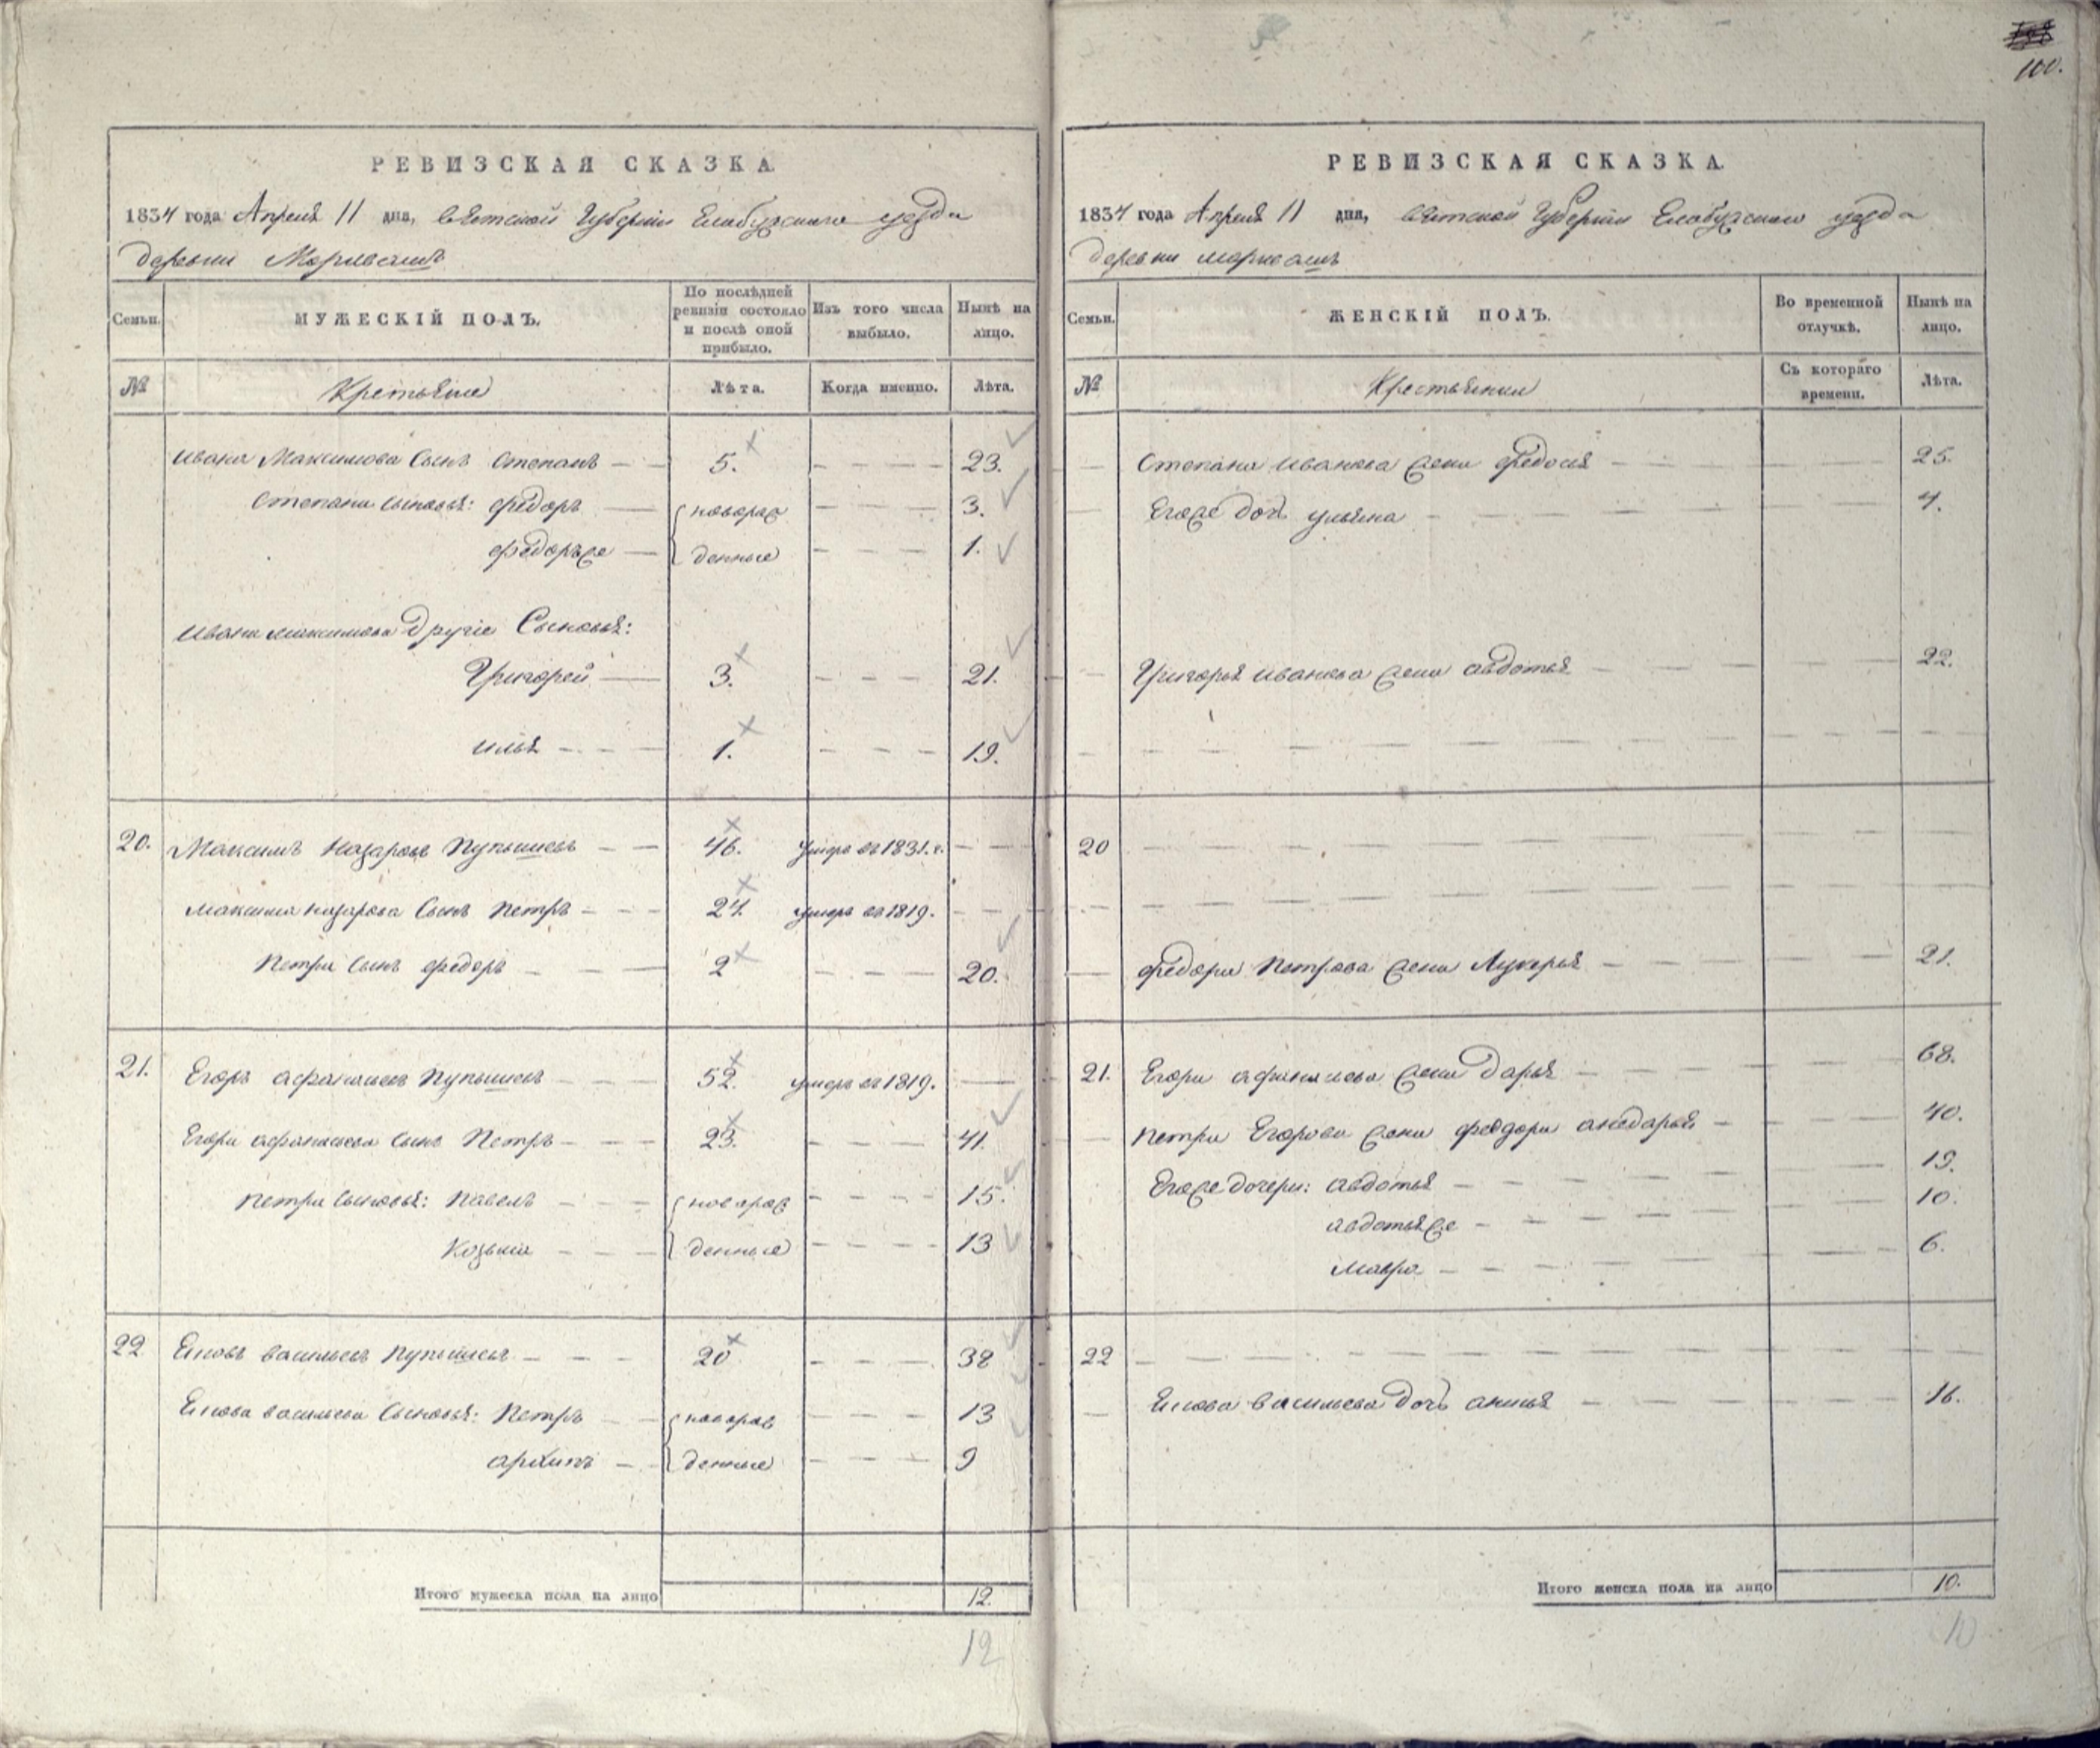 100.
РЕВИЗСКАЯ СКАЗКА.
1834 года Апреля 11 дня, Вятской Губернии Елабужскаго уезда
деревни Марквашъ
Семьи.
МУЖЕСКІЙ ПОЛЪ.
По послѣдней ревизіи состояло и послѣ оной прибыло.
Изъ того числа выбыло.
Нынѣ на лицо.
№
Крестьяне
Лѣта.
Когда именно.
Лѣта.
Ивана Максимова Сынъ Степанъ 5. 23.
Степана Сыновья: Федоръ новорож 3.
Федоръ же денные 1.
Ивана Максимова Другіе Сыновья:
Григорей 3. 21.
Илья 1. 19.
20. Максимъ Назаровъ Пупышевъ 46. умеръ въ 1831. г.
Максима Назарова Сынъ Петръ 24. умеръ въ 1819.
Петра Сынъ Федоръ 2 20.
21. Егоръ Афанасьевъ Пупышевъ 52. умеръ въ 1819.
Егора Афанасьева Сынъ Петръ 23. 41.
Петра Сыновья: Павелъ новорож 15.
Козьма денные 13
22 Васильевъ Пупышевъ 20 38
Васильева Сыновья: Петръ новорож 13
Архипъ денные 9
Итого мужеска пола на лицо 12.
12
РЕВИЗСКАЯ СКАЗКА.
1834 года Апреля 11 дня, Вятской Губерніи Елабужскаго уезда
деревни Марквашъ
Семьи.
ЖЕНСКІЙ ПОЛЪ.
Во временной отлучкѣ.
Нынѣ на лицо.
№
Крестьянки
Съ котораго времени.
Лѣта.
Степана Иванова жена Федосья 25.
Его же дочь Ульяна 4.
Григорья Иванова жена Авдотья 22.
20
Федора Петрова жена Лукерья 21.
21. Егора Афанасьева жена Дарья 68.
Петра Егорова жена Федора 40.
Его же дочери: Авдотья 19.
Авдотья же 10.
Мавра 6.
22
Васильева Дочь Анисья 16.
Итого женска пола на лицо 10.
10